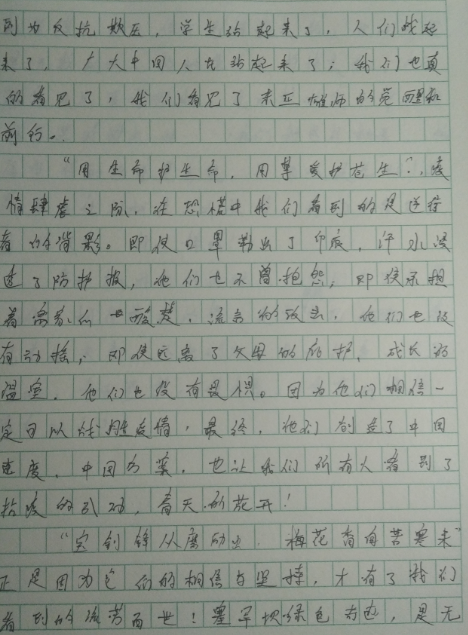 到为反抗欺压，学生站起来了，人们战起
来了，广大中国人民站起来了；我们也真
的看见了，我们看见了东亚雄师的觉醒和
前行。
“用生命护生命，用挚爱护苍生”，疫
情肆虐之际，在恐慌中我们看到的是逆行
者的背影。即使口罩勒出了印痕，汗水浸
透了防护服，他们也不曾抱怨，即使承担
着离家的悲楚，流言的攻击，他们也没
有动摇；即使远离了父母的庇护，成长的
温室，他们也没有畏惧。因为他们相信一
定可以战胜疫情，最终，他们创造了中国
速度，中国方案，也让我们所有人看到了
抗疫的成功，春天的花开！
“宝剑锋从磨砺出，梅花香自苦寒来”
正是因为它们的相信与坚持，才有了我们
看到的流芳百世！塞罕坝绿色奇迹，是无